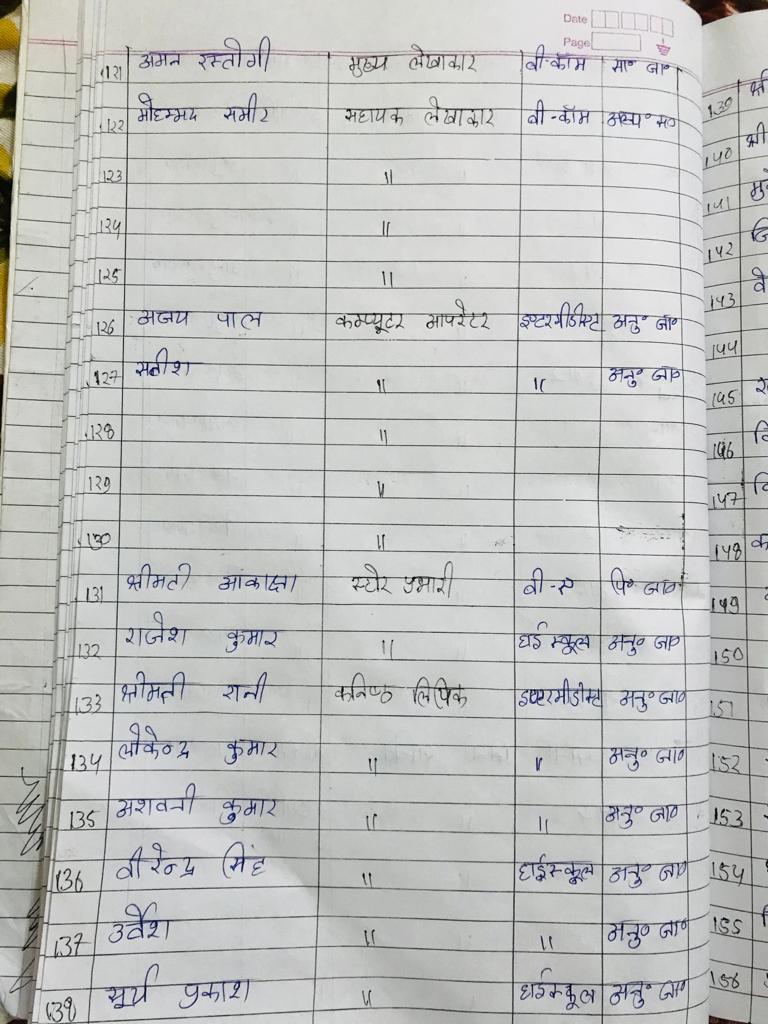 Date
Page
121 अमन रस्तोगी मुख्य लेखाकार बी-कॉम सा० जा०
122 मोहम्मद समीर सहायक लेखाकार बी-कॉम अल्प० स०
123 "
124 "
125 "
126 अजय पाल कम्प्यूटर आपरेटर इण्टरमीडीएट अनु० जा०
127 सतीश " " अनु० जा०
128 "
129 "
130 "
131 श्रीमती आकांक्षा स्टोर प्रभारी बी-ए पि० जा०
132 राजेश कुमार " हाई स्कूल अनु० जा०
133 श्रीमती रानी कनिष्ठ लिपिक इण्टरमीडीएट अनु० जा०
134 लोकेन्द्र कुमार " " अनु० जा०
135 अशवनी कुमार " " अनु० जा०
136 वीरेन्द्र सिंह " हाईस्कूल अनु० जा०
137 उर्वेश " " अनु० जा०
138 सूर्य प्रकाश " हाईस्कूल अनु० जा०
139 श्री
140 श्री
141
142
143
144
145
146
147
148
149
150
151
152
153
154
155
156